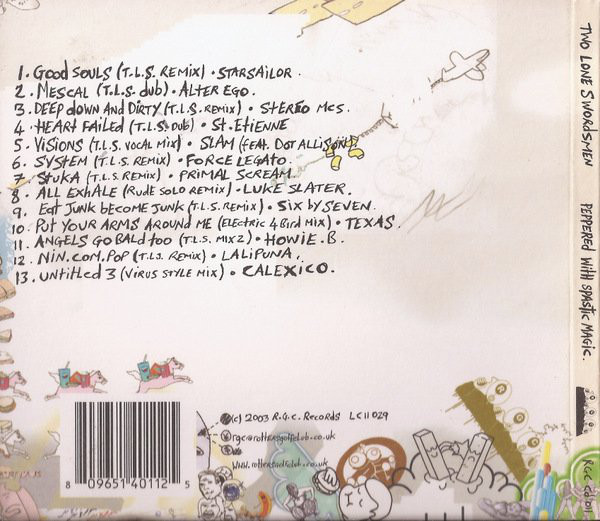 1. Good Souls (T.L.S. Remix) • Starsailor.
2. Mescal (T.L.S. dub) • Alter Ego.
3. Deep down And Dirty (T.L.S. remix) • Stereo Mcs.
4. Heart Failed (T.L.S. Dub) • St. Etienne
5. Visions (T.L.S. vocal mix) • Slam (feat. Dot Allison).
6. System (T.L.S. remix) • Force Legato.
7. Stuka (T.L.S. remix) • Primal Scream.
8. All Exhale (Rude Solo Remix) • Luke Slater.
9. Eat Junk become Junk (T.L.S. remix) • Six by Seven.
10. Put your Arms Around Me (Electric 4 Bird Mix) • Texas.
11. Angels go Bald too (T.L.S. mix 2) • Howie. B.
12. Nin. Com. Pop (T.L.S. Remix) • Lalipuna.
13. Untitled 3 (Virus Style Mix) • Calexico.
(c) 2003 R.G.C. Records LC 11029
rgc@rottersgolfclub.co.uk
www.rottersgolfclub.co.uk
8 09651 40112 5
Two Lone Swordsmen Peppered with spastic magic. RGC cd 011